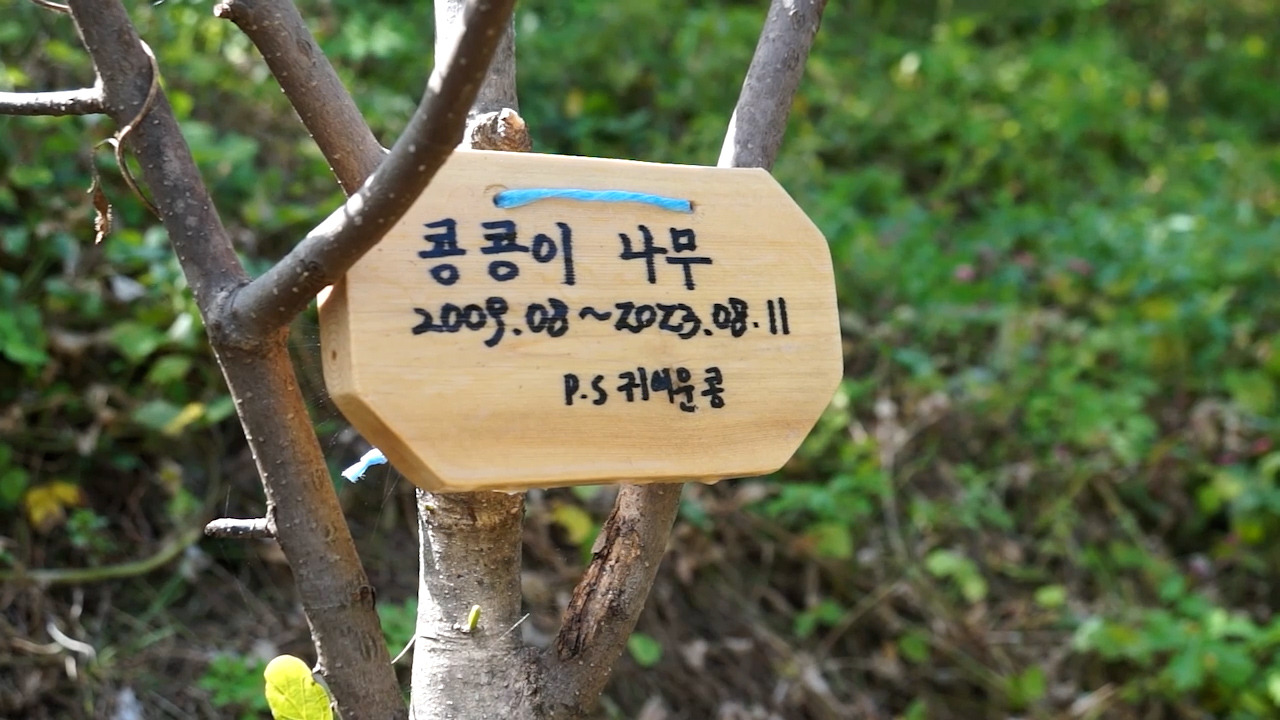 콩콩이 나무
2009.08~2023.08.11
P.S 귀여운콩